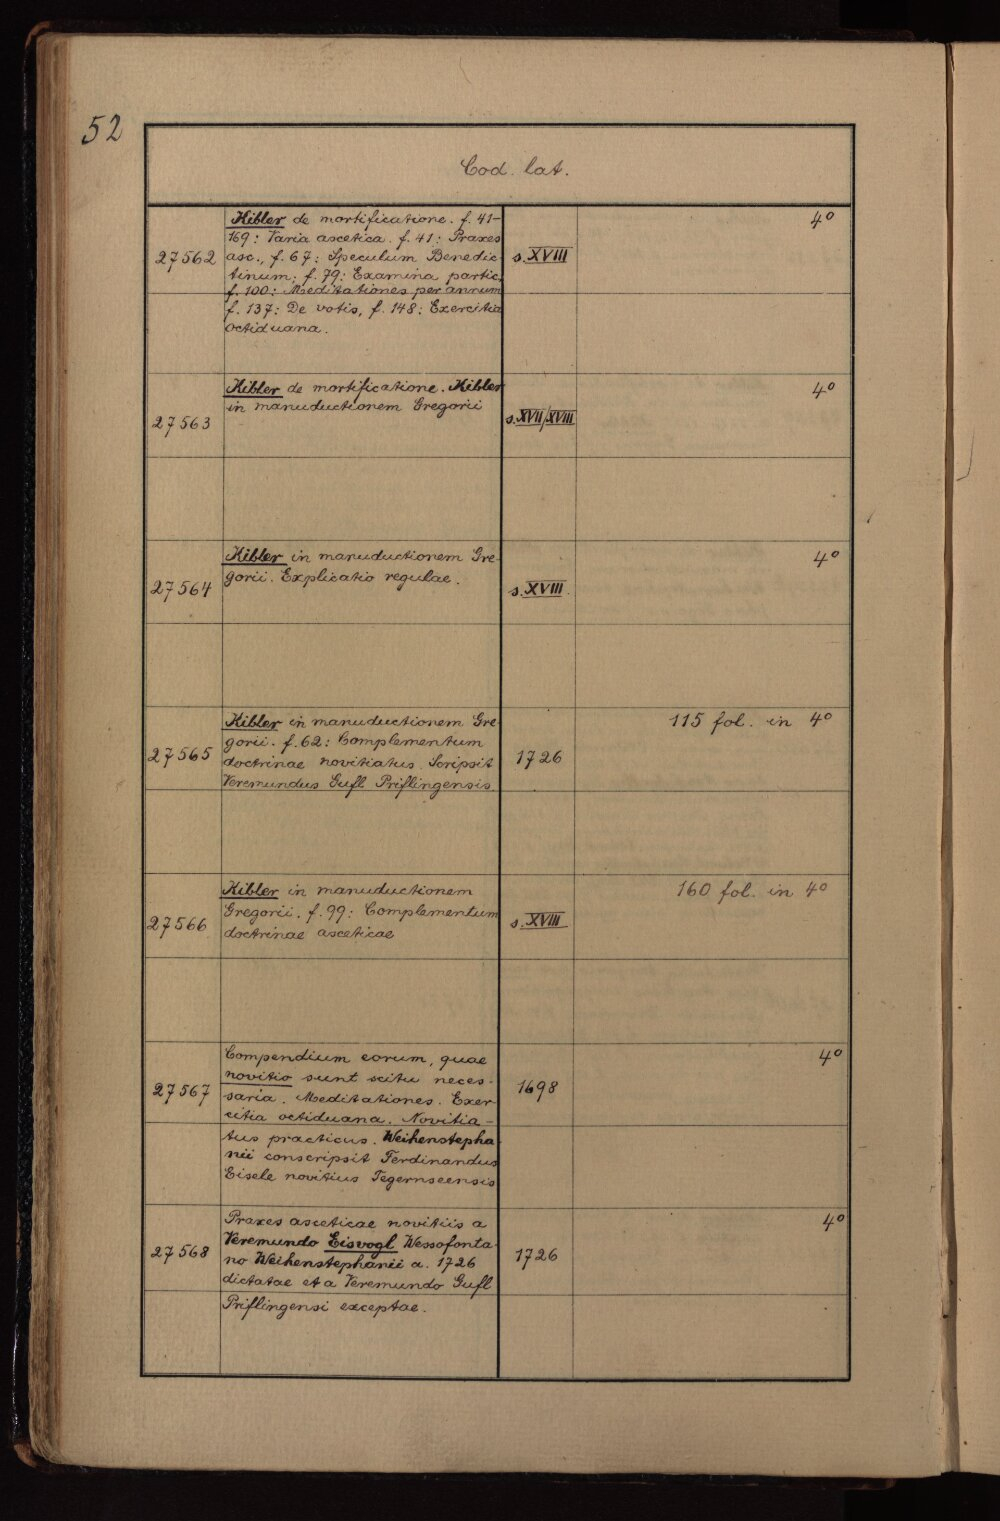 52
Cod. lat.
27562
Kibler de mortificatione. f. 41-
169: Varia ascetica. f. 41: Praxes
asc., f. 67: Speculum Benedic-
tinum; f. 79: Examina partic.,
f. 100: Meditationes per annum
f. 137: De votis, f. 148: Exercitia
octiduana.
s. XVIII
4°
27563
Kibler de mortificatione. Kibler
in manuductionem Gregorii
s. XVII/XVIII
4°
27564
Kibler in manuductionem Gre
gorii. Explicatio regulae.
s. XVIII.
4°
27565
Kibler in manuductionem Gre
gorii. f. 62: Complementum
doctrinae novitiatus. Scripsit
Veremundus Gufl Priflingensis
1726
115 fol. in 4°
27566
Kibler in manuductionem
Gregorii. f. 99: Complementum
doctrinae asceticae
s. XVIII
160 fol. in 4°
27567
Compendium eorum, quae
novitio sunt scitu neces-
saria. Meditationes. Exer
citia octiduana. Novitia-
tus practicus. Weihenstepha
nii conscripsit Ferdinandus
Eisele novitius Tegernseensis
1698
4°
27568
Praxes asceticae novitiis a
Veremundo Eisvogl Wessofonta
no Weihenstephanii a. 1726
dictatae et a Veremundo Gufl
Priflingensi exceptae.
1726
4°